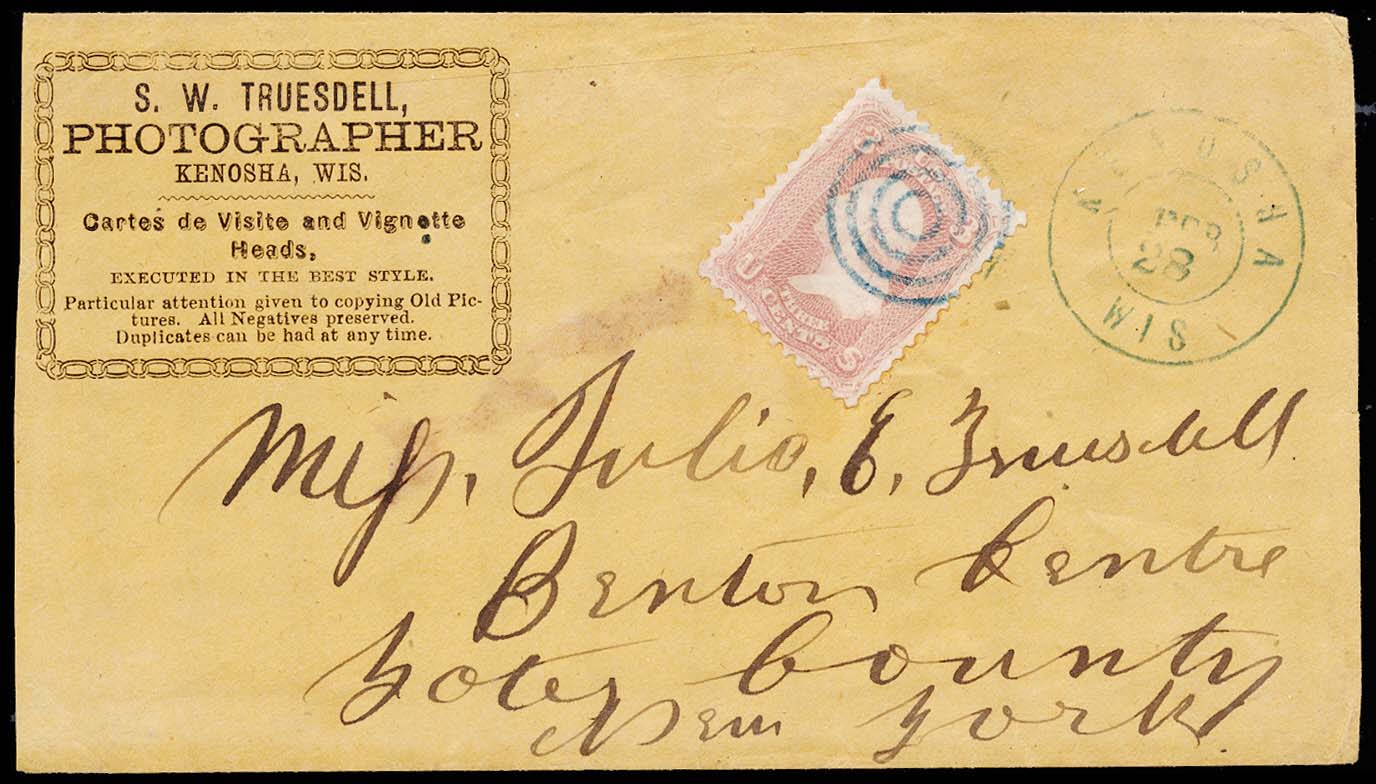 S. W. TRUESDELL,
PHOTOGRAPHER
KENOSHA, WIS.
Cartes de Visite and Vignette
Heads,
EXECUTED IN THE BEST STYLE.
Particular attention given to copying Old Pic-
tures. All Negatives preserved.
Duplicates can be had at any time.
3
3
U
S
THREE
CENTS
KENOSHA
28
WIS
Miss, Julia, E, Truesdell
Benton Centre
Yates County
New York